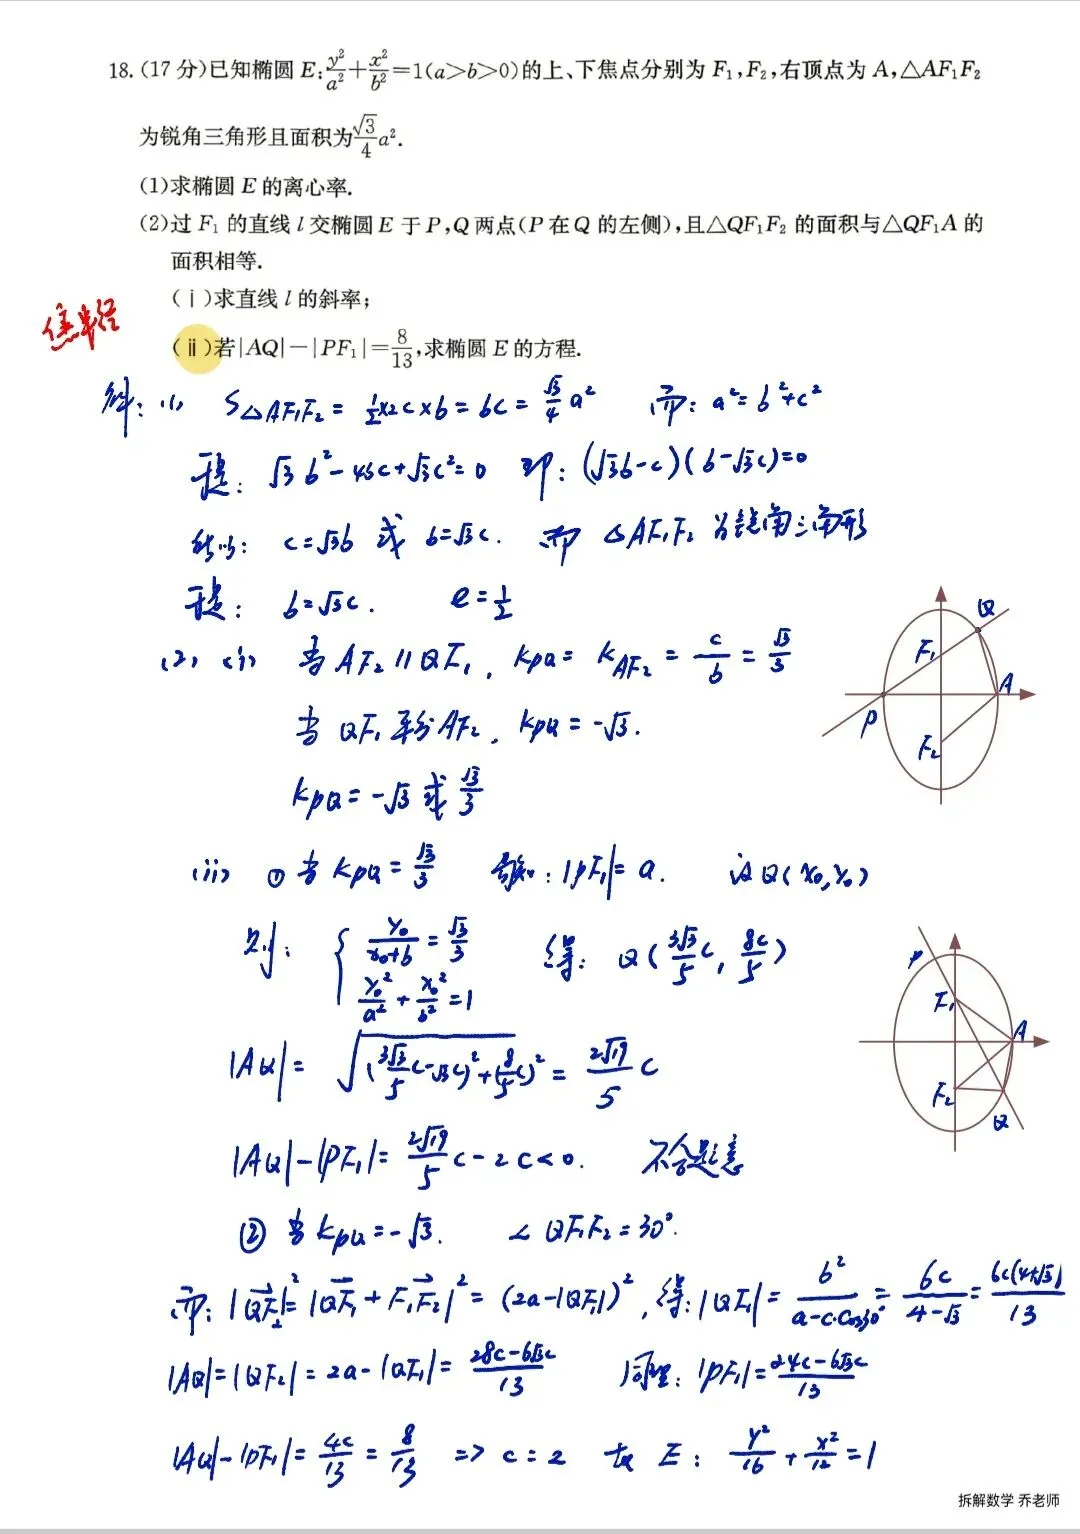 18.(17分)已知椭圆E:y²/a²+x²/b²=1(a>b>0)的上、下焦点分别为F₁,F₂,右顶点为A,△AF₁F₂
为锐角三角形且面积为√3/4a².
(1)求椭圆E的离心率.
(2)过F₁的直线l交椭圆E于P,Q两点(P在Q的左侧),且△QF₁F₂的面积与△QF₁A的
面积相等.
(ⅰ)求直线l的斜率;
焦半径
(ⅱ)若|AQ|-|PF₁|=8/13,求椭圆E的方程.
解:(1) S△AF₁F₂=1/2×2c×b=bc=√3/4a² 而:a²=b²+c²
于是:√3b²-4bc+√3c²=0 即:(√3b-c)(b-√3c)=0
所以:c=√3b 或 b=√3c. 而 △AF₁F₂为锐角三角形
于是:b=√3c. e=1/2
(2) (i) 当AF₂∥QF₁,kPQ=kAF₂=c/b=√3/3
当QF₁平分AF₂,kPQ=-√3.
kPQ=-√3或√3/3
Q
F₁
A
P
F₂
(ii) ①当kPQ=√3/3 易知:|PF₁|=a. 设Q(x₀,y₀)
则:{y₀/(x₀+b)=√3/3 得:Q(3√3/5c,8c/5)
y₀²/a²+x₀²/b²=1
P
F₁
A
F₂
Q
|AQ|=√((3√3/5c-√3c)²+(8/5c)²)=2√19/5c
|AQ|-|PF₁|=2√19/5c-2c<0. 不合题意
②当kPQ=-√3. ∠QF₁F₂=30°.
而:|QF₂|²=|QF₁+F₁F₂|²=(2a-|QF₁|)²,得:|QF₁|=b²/(a-c·cos30°)=6c/(4-√3)=6c(4+√3)/13
|AQ|=|QF₂|=2a-|QF₁|=(28c-6√3c)/13 同理:|PF₁|=(24c-6√3c)/13
|AQ|-|PF₁|=4c/13=8/13 => c=2 故E:y²/16+x²/12=1
拆解数学 乔老师